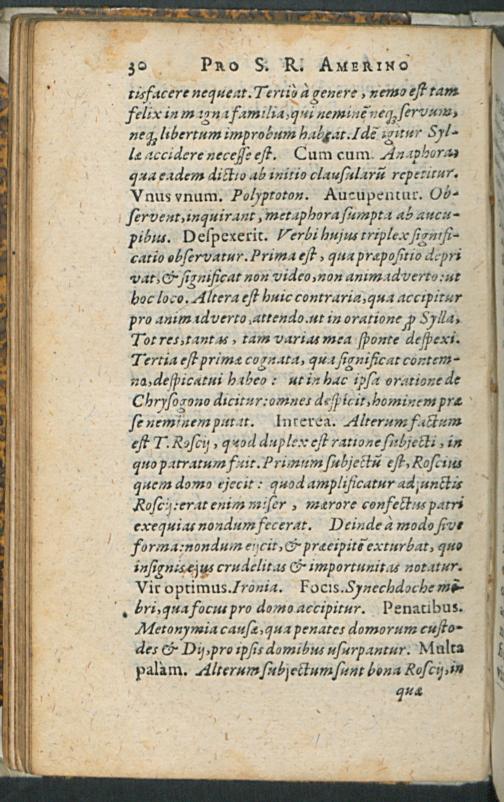 30 PRO S. R. AMERINO
tisfacere nequeat. Tertiò à genere, nemo est tam
felix in magna familia, qui neminẽ neq₃ servum,
neq₃ libertum improbum habeat. Idẽ igitur Syl-
læ accidere necesse est. Cum cum. Anaphora,
qua eadem dictio ab initio clausularũ repetitur.
Vnus vnum. Polyptoton. Aucupentur. Ob-
servent, inquirant, metaphora sumpta ab aucu-
pibus. Despexerit. Verbi hujus triplex signifi-
catio observatur. Prima est, qua præpositio depri
vat, & significat non video, non animadverto: ut
hoc loco. Altera est huic contraria, qua accipitur
pro animadverto, attendo. ut in oratione ꝓ Sylla,
Tot res, tantas, tam varias mea sponte despexi.
Tertia est primæ cognata, qua significat contem-
no, despicatui habeo: ut in hac ipsa oratione de
Chrysogono dicitur: omnes despicit, hominem præ
se neminem putat. Interea. Alterum factum
est T. Roscij, quod duplex est ratione subjecti, in
quo patratum fuit. Primum subjectũ est, Roscius
quem domo ejecit: quod amplificatur adjunctis
Roscij: erat enim miser, mærore confectus patri
exequias nondum fecerat. Deinde à modo sive
forma: nondum eijcit, & præcipitẽ exturbat, quo
insignis ejus crudelitas & importunitas notatur.
Vir optimus. Ironia. Focis. Synechdoche mẽ-
bri, qua focus pro domo accipitur. Penatibus.
Metonymia causæ, qua penates domorum custo-
des & Dij, pro ipsis domibus usurpantur. Multa
palàm. Alterum subjectum sunt bona Roscij, in
quæ